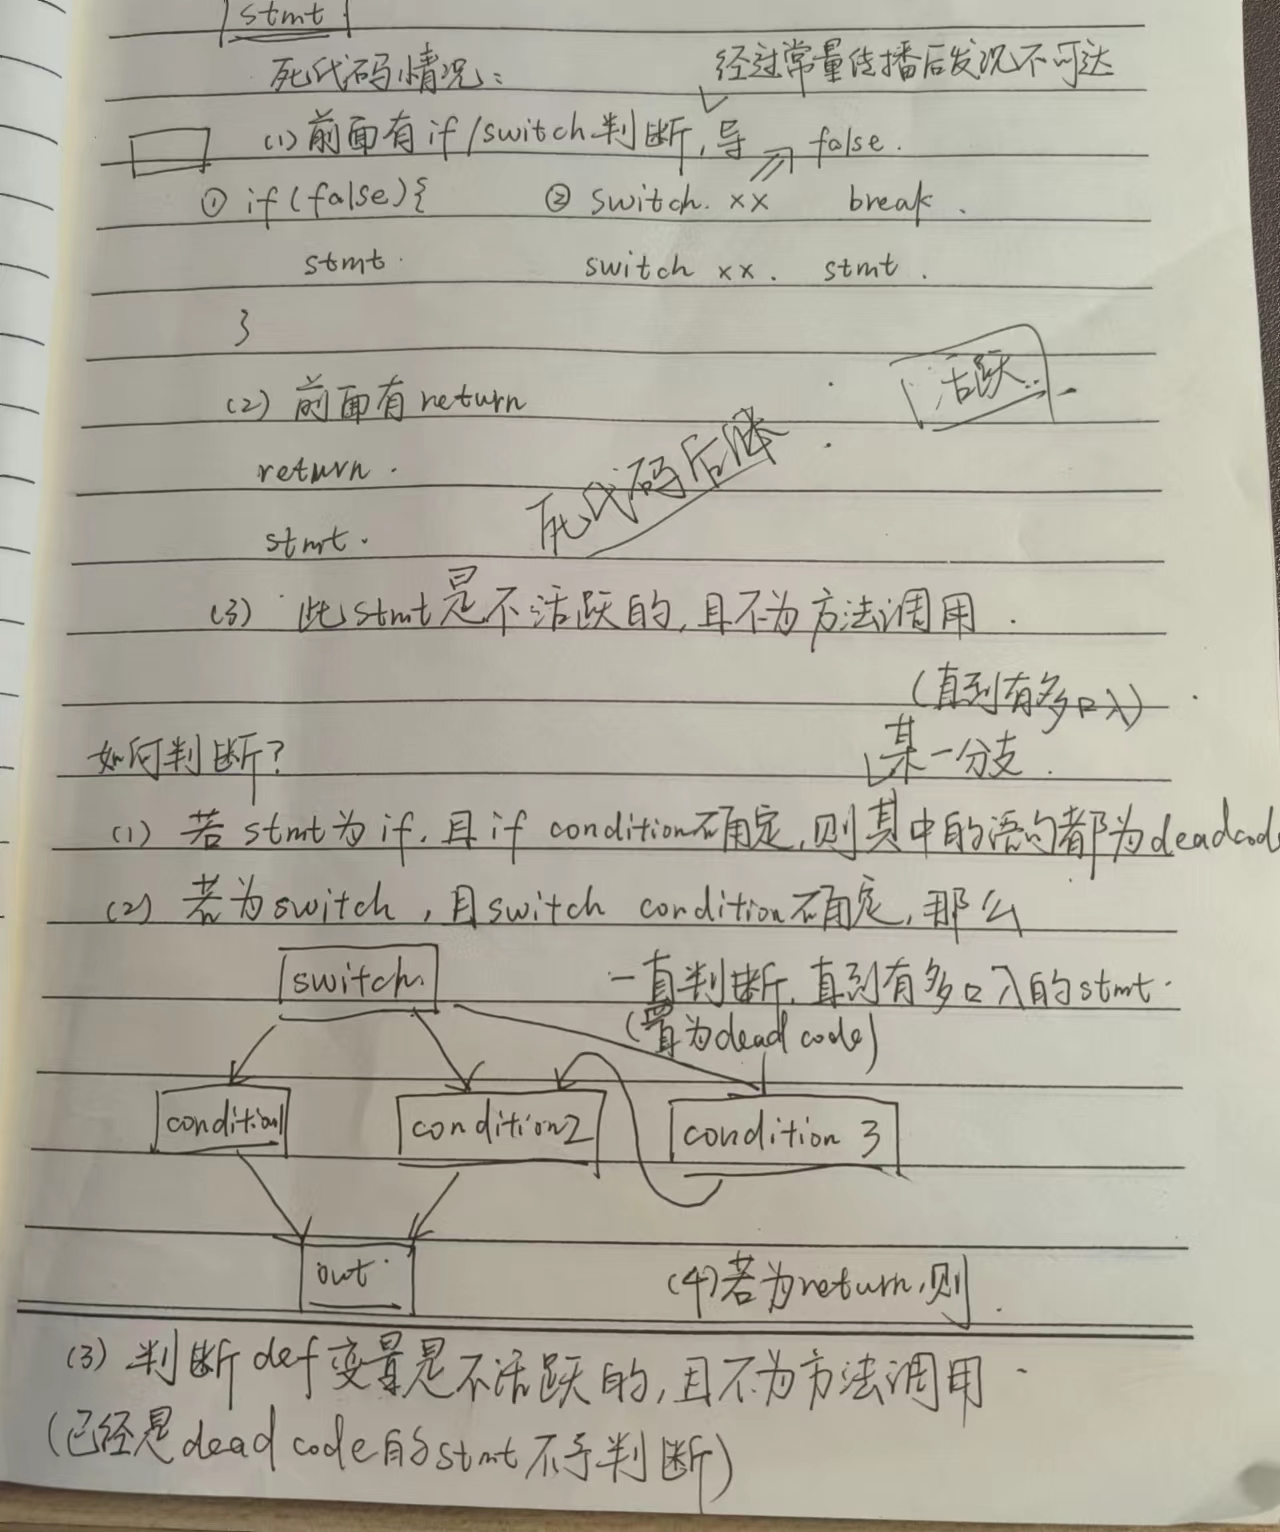 stmt
死代码情况:
经过常量传播后发现不可达
(1) 前面有if/switch判断,导 false.
① if(false){ ② switch. xx break.
stmt. switch xx. stmt.
}
活跃
(2) 前面有return
return.
死代码后继
stmt.
(3) 此stmt是不活跃的,且不为方法调用.
(直到有多口入)
如何判断? 某一分支.
(1) 若stmt为if,且if condition不确定,则其中的语句都为deadcod
(2) 若为switch,且switch condition不确定,那么
switch 一直判断,直到有多口入的stmt.
(置为dead code)
condition1 condition2 condition 3
out
(4)若为return,则.
(3) 判断def变量是不活跃的,且不为方法调用
(已经是dead code的stmt不予判断)